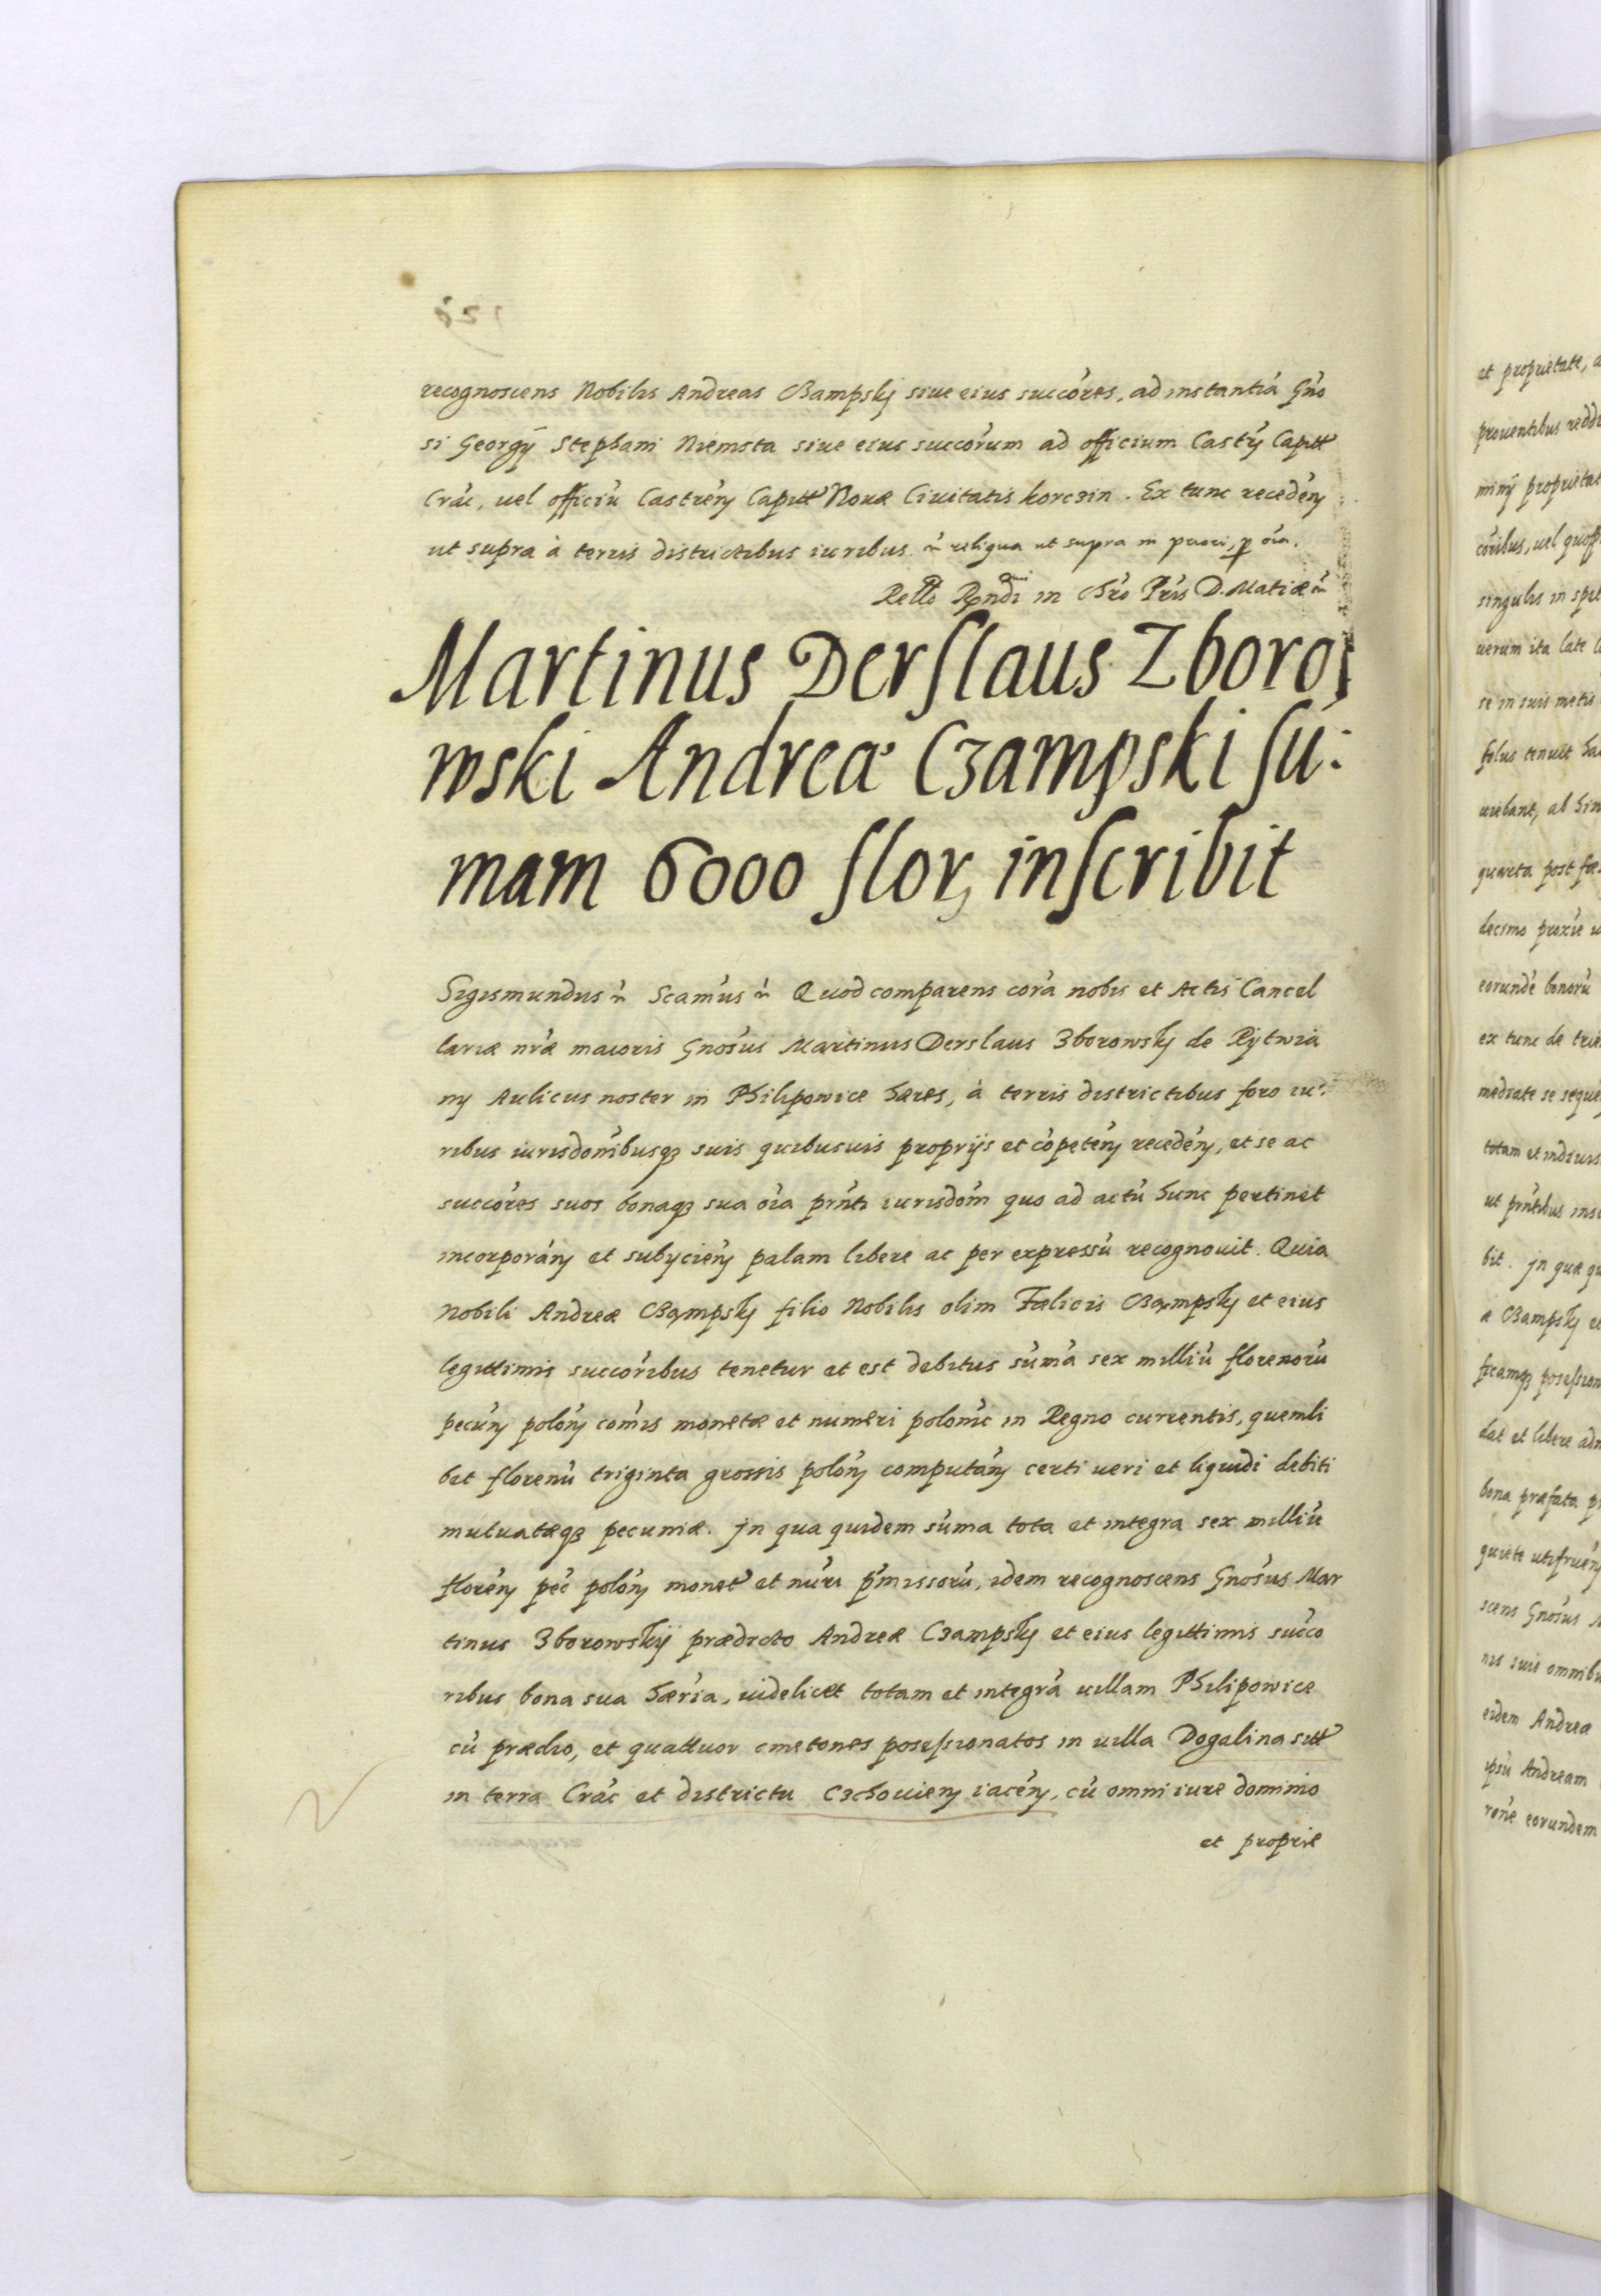 recognoscens Nobilis Andreas Czampskj siue eius succőres, ad instantiá Gńo
si Georgÿ Stephani Niemsta siue eius succőrum ad officium Castrń Capitt
Crac, uel officiú Castreń Capitt Nouæ Ciuitatis korczin. Ex tunc recedeń
ut supra à terris districtibus iuribus ... reliqua ut supra in priori, p oía.
Rełło Rǹdi in Chró Pris D. Matiæ
Martinus Derslaus Zboro
wski Andreæ Czampski sú:
mam 6000 flor, inscribit
Sigismundus ... Scamús ... Quod comparens corá nobis et Actis Cancel
lariæ nrǽ maioris Gnósus Martinus Derslaus Zborowskj de Rytwia
ny Aulicus noster in Philipowice hæres, à terris districtibus foro iu:
ribus iurisdońibusqz suis quibusuis proprijs et cópeteń recedeń, et se ac
succőres suos bonaqz sua oía prńti iurisdoń quo ad actú hunc pertinet
incorporań et subijcień palam libere ac per expressú recognouit. Quia
Nobili Andreæ Czampskj filio Nobilis olim Fælicis Czampskj et eius
legittimis succőribus tenetur et est debitus súmá sex milliú florenorú
pecuń poloń comís monetæ et numeri polonic in Regno currentis, quemli
bet florenú triginta grossis poloń computań certi ueri et liquidi debiti
mutuatæqz pecuniæ. Jn qua quidem súma tota et integra sex milliú
floreń pec poloń monet et núri pmissorú, idem recognoscens Gnósus Mar
tinus Zborowskij prædicto Andreæ Czampskj et eius legittimis succo
ribus bona sua hæria, uidelicet totam et integrá uillam Philipowice
cú prædio, et quattuor cmetones posessionatos in uilla Dogalina sitt
in terra Crac et districtu Czchouień iaceń, cú omni iure dominio
et proprie
et proprietate, a
prouentibus reddi
minÿ proprietat
cőribus, uel quop
singulis in spe
uerum ita late l
se in suis metis
solus tenuit ha
uiebant, ab hin
quarta post
decimo proxie u
eorundé bonorú
ex tunc de trie
mediate se seque
totam et indiuis
ut prńtibus ins
bit. Jn qua qu
æ Czampskj et
ficamqz posession
dat et libere adm
bona præfata p
quiete utifrueń
scens Gnósus M
nis suis omnibu
eidem Andreæ
ipsú Andream
rońe eorundem